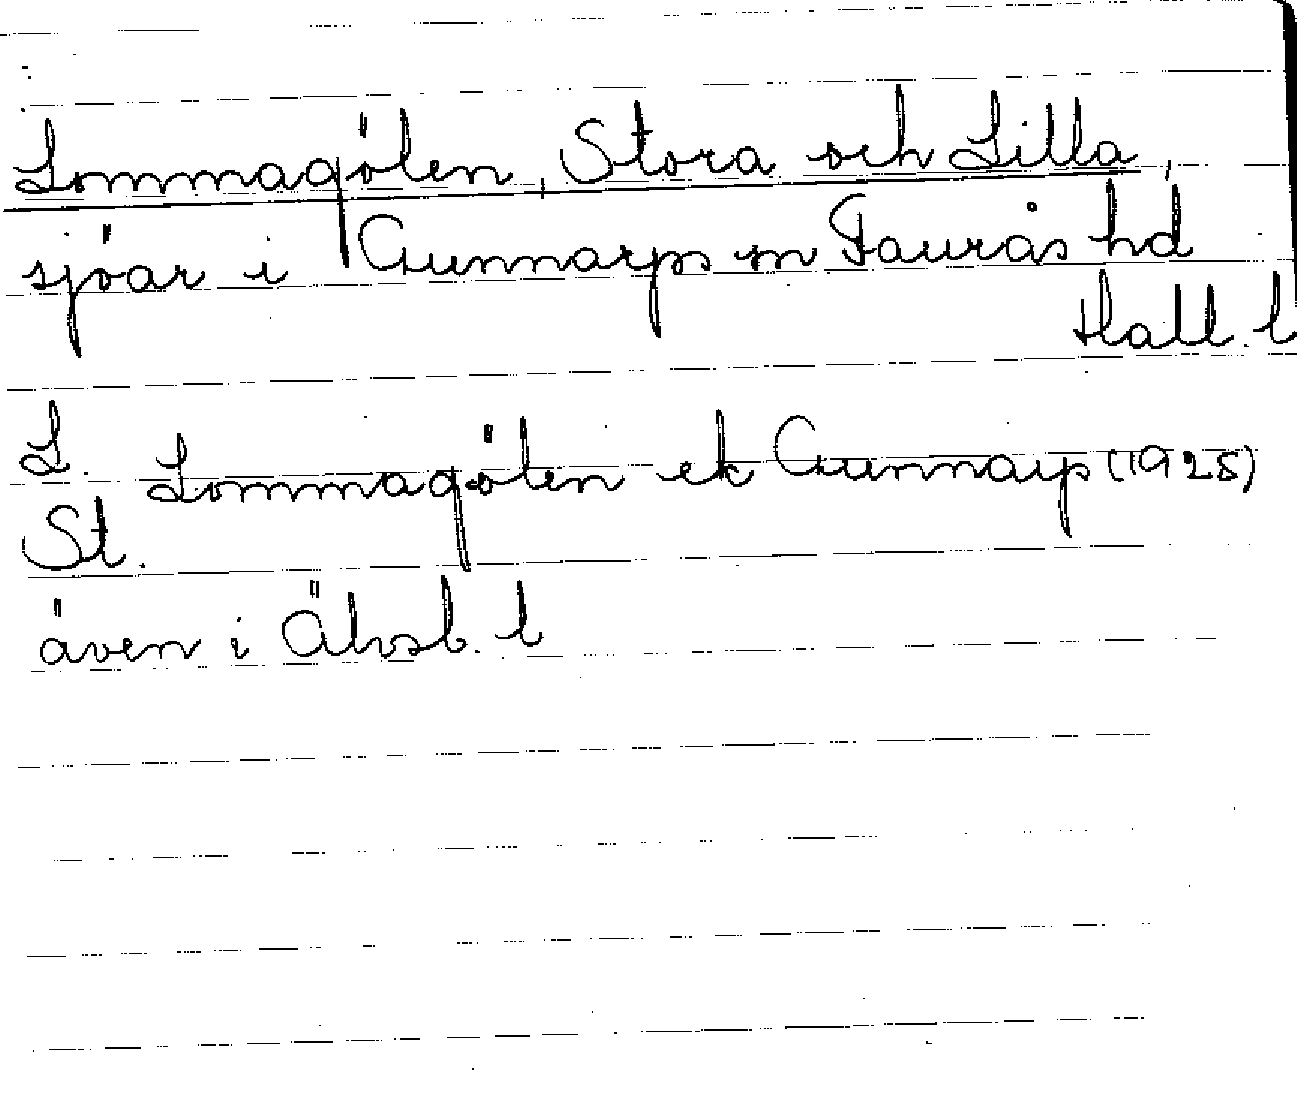 Lommagölen, Stora och Lilla,
sjöar i Gunnarps sn Faurås hd
Hall. l
L.
Lommagölen ek Gunnarp (1925)
St.
även i Älvsb. l